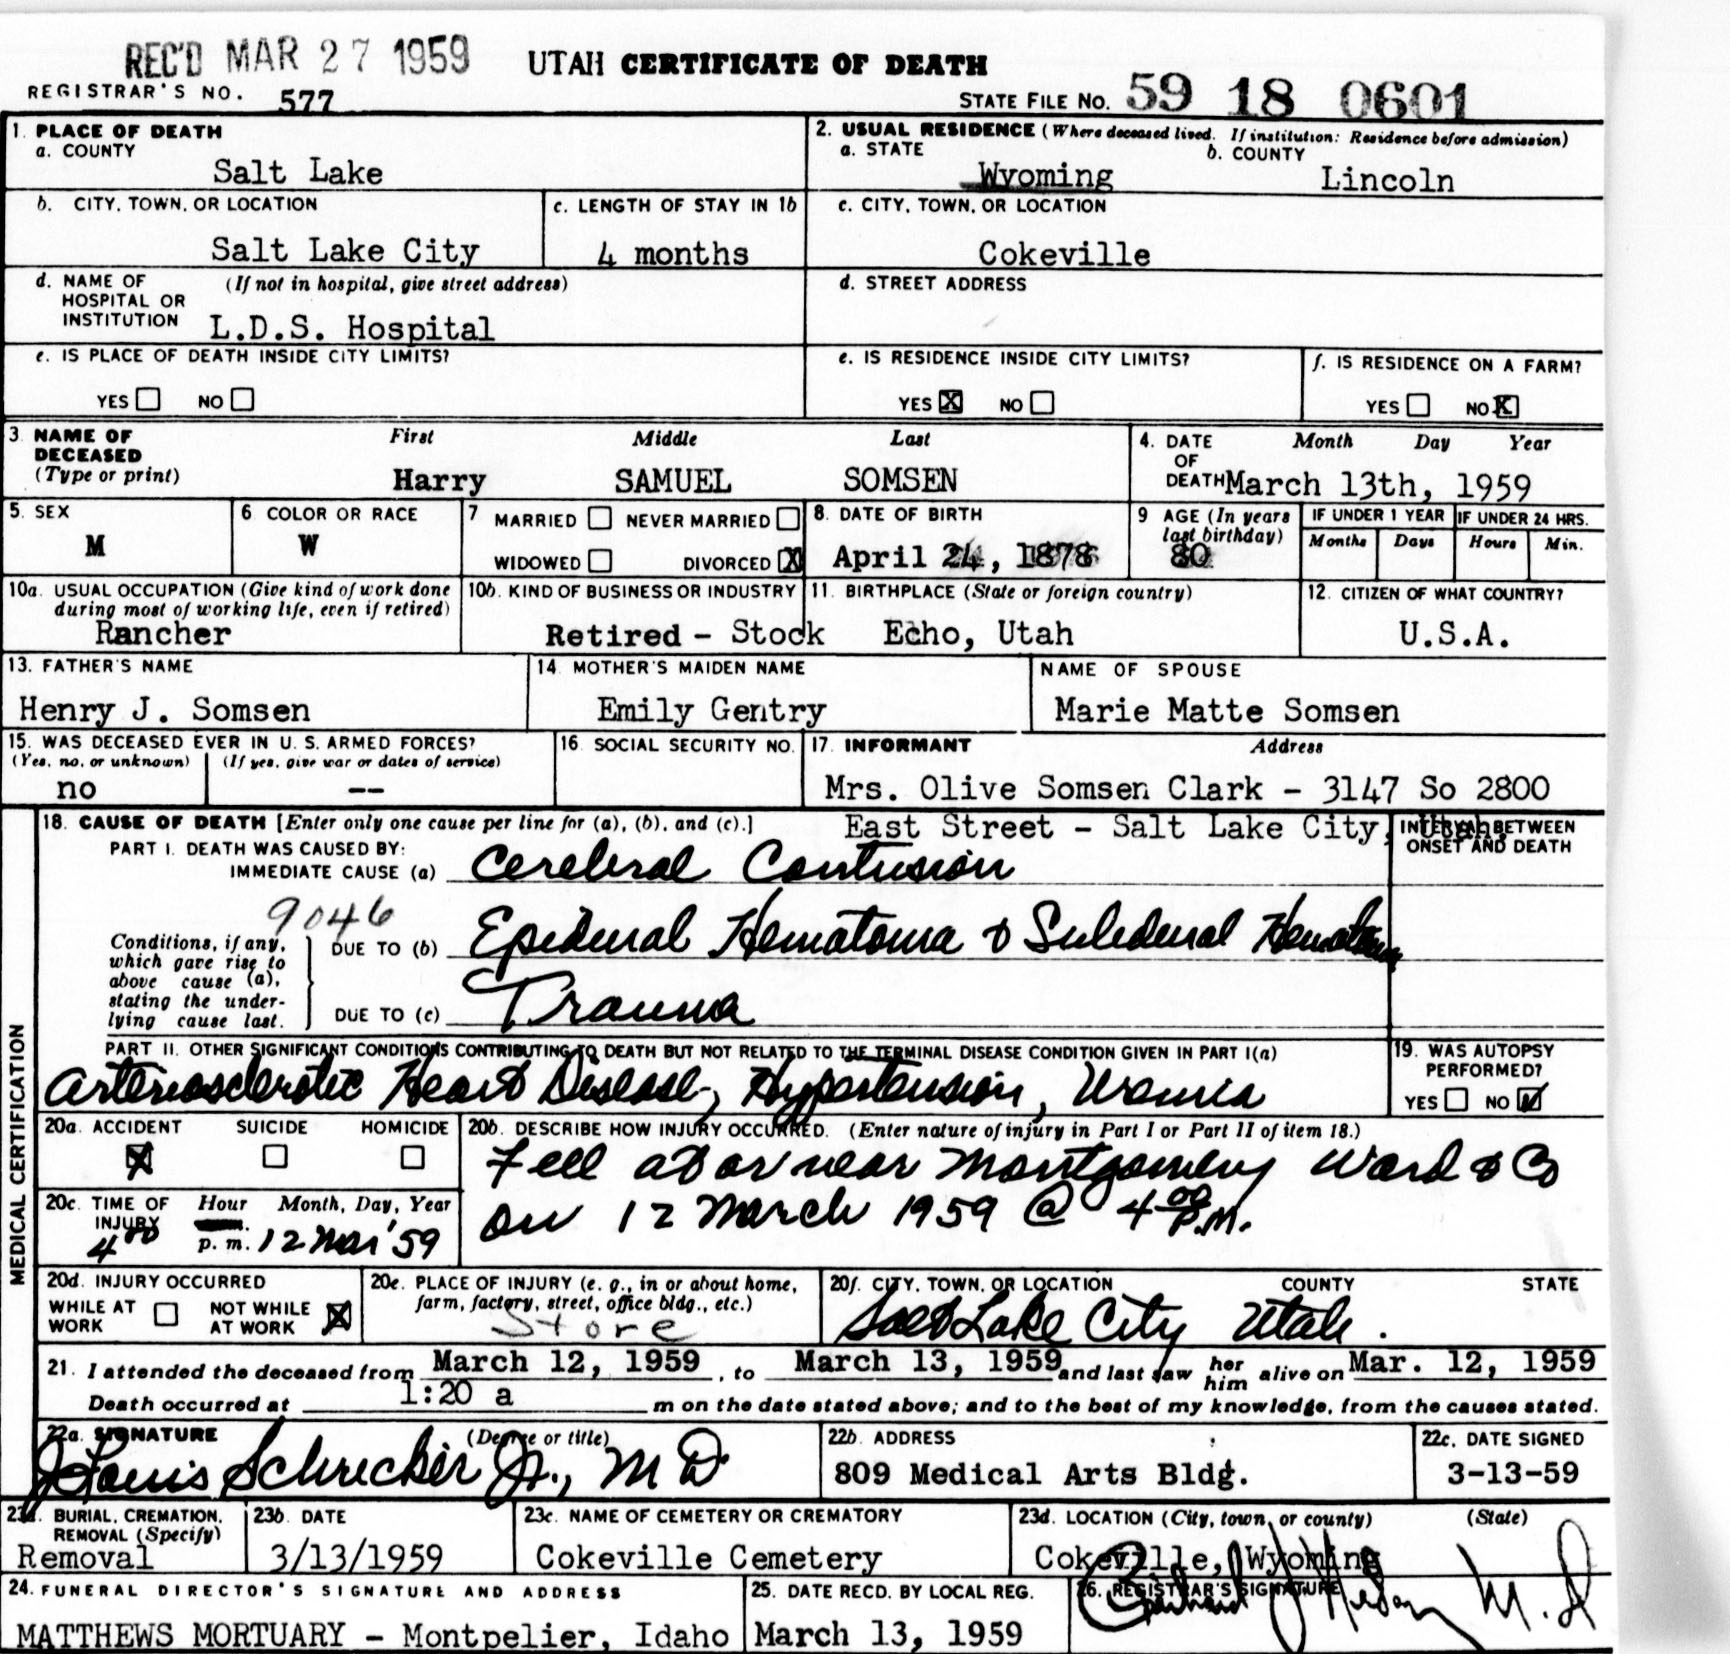 REC'D MAR 27 1959 UTAH CERTIFICATE OF DEATH
REGISTRAR'S NO. 577 STATE FILE NO. 59 18 0601
1. PLACE OF DEATH
a. COUNTY
Salt Lake
2. USUAL RESIDENCE (Where deceased lived. If institution: Residence before admission)
a. STATE b. COUNTY
Wyoming Lincoln
b. CITY, TOWN, OR LOCATION
Salt Lake City
c. LENGTH OF STAY IN 1b
4 months
c. CITY, TOWN, OR LOCATION
Cokeville
d. NAME OF (If not in hospital, give street address)
HOSPITAL OR
INSTITUTION L.D.S. Hospital
d. STREET ADDRESS
e. IS PLACE OF DEATH INSIDE CITY LIMITS?
YES NO
e. IS RESIDENCE INSIDE CITY LIMITS?
YES X NO
f. IS RESIDENCE ON A FARM?
YES NO X
3. NAME OF First Middle Last
DECEASED
(Type or print) Harry SAMUEL SOMSEN
4. DATE Month Day Year
OF
DEATH March 13th, 1959
5. SEX
M
6. COLOR OR RACE
W
7. MARRIED NEVER MARRIED
WIDOWED DIVORCED X
8. DATE OF BIRTH
April 24, 1878
9. AGE (In years
last birthday)
80
IF UNDER 1 YEAR IF UNDER 24 HRS.
Months Days Hours Min.
10a. USUAL OCCUPATION (Give kind of work done
during most of working life, even if retired)
Rancher
10b. KIND OF BUSINESS OR INDUSTRY
Retired - Stock
11. BIRTHPLACE (State or foreign country)
Echo, Utah
12. CITIZEN OF WHAT COUNTRY?
U.S.A.
13. FATHER'S NAME
Henry J. Somsen
14. MOTHER'S MAIDEN NAME
Emily Gentry
NAME OF SPOUSE
Marie Matte Somsen
15. WAS DECEASED EVER IN U. S. ARMED FORCES?
(Yes, no, or unknown) (If yes, give war or dates of service)
no --
16. SOCIAL SECURITY NO.
17. INFORMANT Address
Mrs. Olive Somsen Clark - 3147 So 2800
East Street - Salt Lake City, Utah.
MEDICAL CERTIFICATION
18. CAUSE OF DEATH [Enter only one cause per line for (a), (b), and (c).]
INTERVAL BETWEEN
ONSET AND DEATH
PART I. DEATH WAS CAUSED BY:
IMMEDIATE CAUSE (a) Cerebral Contusion
9046
Conditions, if any,
which gave rise to
above cause (a),
stating the under-
lying cause last.
DUE TO (b) Epidural Hematoma & Subdural Hematoma
DUE TO (c) Trauma
PART II. OTHER SIGNIFICANT CONDITIONS CONTRIBUTING TO DEATH BUT NOT RELATED TO THE TERMINAL DISEASE CONDITION GIVEN IN PART I(a)
Arteriosclerotic Heart Disease, Hypertension, Uremia
19. WAS AUTOPSY
PERFORMED?
YES NO
20a. ACCIDENT SUICIDE HOMICIDE
X
20b. DESCRIBE HOW INJURY OCCURRED. (Enter nature of injury in Part I or Part II of item 18.)
Fell at or near Montgomery Ward & Co
on 12 March 1959 @ 4 00 P.M.
20c. TIME OF Hour Month, Day, Year
INJURY
4 00 p. m. 12 Mar '59
20d. INJURY OCCURRED
WHILE AT WORK NOT WHILE AT WORK X
20e. PLACE OF INJURY (e. g., in or about home,
farm, factory, street, office bldg., etc.)
Store
20f. CITY, TOWN, OR LOCATION COUNTY STATE
Salt Lake City Utah.
21. I attended the deceased from March 12, 1959, to March 13, 1959 and last saw her him alive on Mar. 12, 1959
Death occurred at 1:20 a m on the date stated above; and to the best of my knowledge, from the causes stated.
22a. SIGNATURE (Degree or title)
J Louis Schricker Jr., M D
22b. ADDRESS
809 Medical Arts Bldg.
22c. DATE SIGNED
3-13-59
23a. BURIAL, CREMATION,
REMOVAL (Specify)
Removal
23b. DATE
3/13/1959
23c. NAME OF CEMETERY OR CREMATORY
Cokeville Cemetery
23d. LOCATION (City, town, or county) (State)
Cokeville, Wyoming
24. FUNERAL DIRECTOR'S SIGNATURE AND ADDRESS
MATTHEWS MORTUARY - Montpelier, Idaho
25. DATE RECD. BY LOCAL REG.
March 13, 1959
26. REGISTRAR'S SIGNATURE
M.D